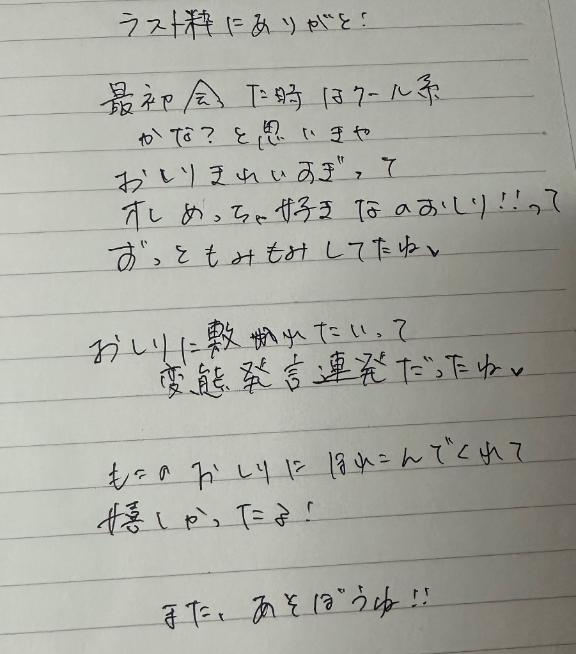 ラスト枠にありがと!
最初会った時はクール系
かな?と思いきや
おしりきれいすぎって
オレめっちゃ好きなのおしり!!って
ずっともみもみしてたね
おしりに敷かれたいって
変態発言連発だったね
ものおしりにほれこんでくれて
嬉しかったよ!
また、あそぼうね!!